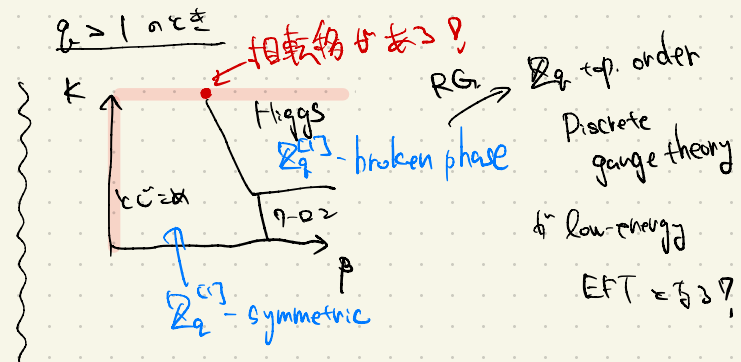 q > 1 のとき
相転移がある!
K
Higgs
Z_q^[1] - broken phase
とじこめ
クーロン
β
Z_q^[1] - symmetric
RG
Z_q top. order
Discrete
gauge theory
が low-energy
EFT となる!